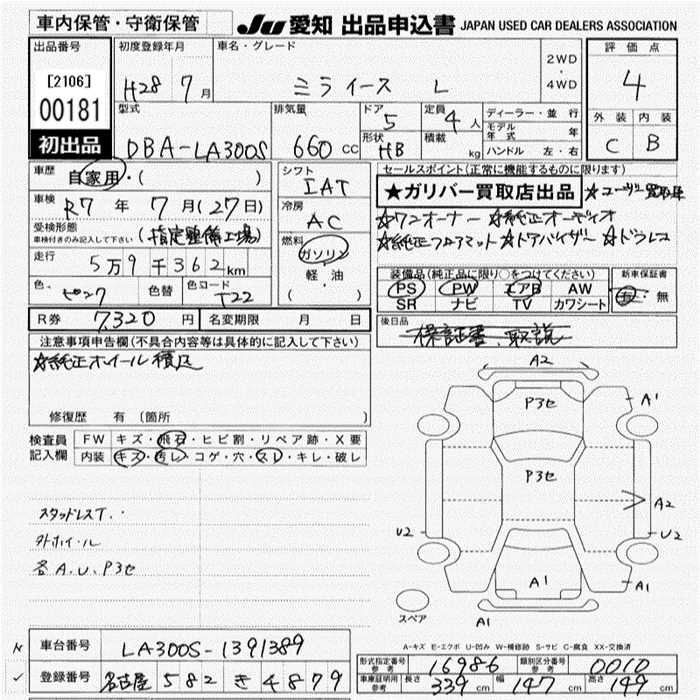 車内保管・守衛保管
JU 愛知 出品申込書 JAPAN USED CAR DEALERS ASSOCIATION
出品番号 初度登録年月 車名・グレード 評価点
[2106] 00181 H28 7月 ミライース L 2WD・4WD 4
型式 排気量 ドア 5 定員 4人 ディーラー・並行 外装 内装
初出品 DBA-LA300S 660cc 形状 HB 積載 kg モデル年式 年 ハンドル 左・右 C B
車歴 自家用・( ) シフト IAT セールスポイント(正常に機能するものに限ります)
★ガリバー買取店出品 ☆ユーザー買取車
車検 R7年 7月(27日) 冷房 AC ☆ワンオーナー ☆純正オーディオ
受検形態 車検付きのみ記入して下さい (指定整備工場) ☆純正フロアマット ☆ドアバイザー ☆ドラレコ
走行 5万9千362km 燃料 ガソリン 軽・油 ( )
装備品(純正品に限り○をつけてください) 新車保証書
色 ピンク 色替 色コード T22 PS PW エアB AW 有・無
SR ナビ TV カワシート
R券 7,320円 名変期限 月 日 後日品
保証書、取説
注意事項申告欄(不具合内容等は具体的に記入して下さい)
☆純正ホイール積込
修復歴 有 (箇所 )
検査員記入欄 FW キズ・飛石・ヒビ割・リペア跡・X要
内装 キズ・汚レ・コゲ・穴・スレ・キレ・破レ
A2
P3セ A1
P3セ
スタッドレスT.
外ホイール
各A.U.P3セ
A2
U2 U2
A1 A1
スペア
A1
A-キズ E-エクボ U-凹み W-補修跡 S-サビ C-腐食 XX-交換済
車台番号 LA300S-1391389
型式指定番号 参考 16986 類別区分番号 参考 0010
登録番号 名古屋 582 き 4879
車庫証明用 参考 長さ 339cm 幅 147cm 高さ 149cm